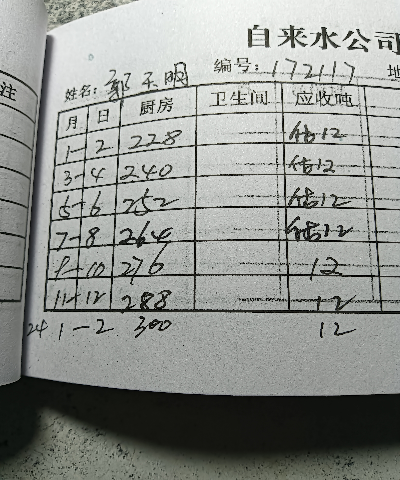 注
自来水公司
姓名: 郭天明 编号: 172117 地
月 日 厨房 卫生间 应收吨
1-2 228 估12
3-4 240 估12
5-6 252 估12
7-8 264 估12
9-10 276 12
11-12 288 12
24 1-2 300 12